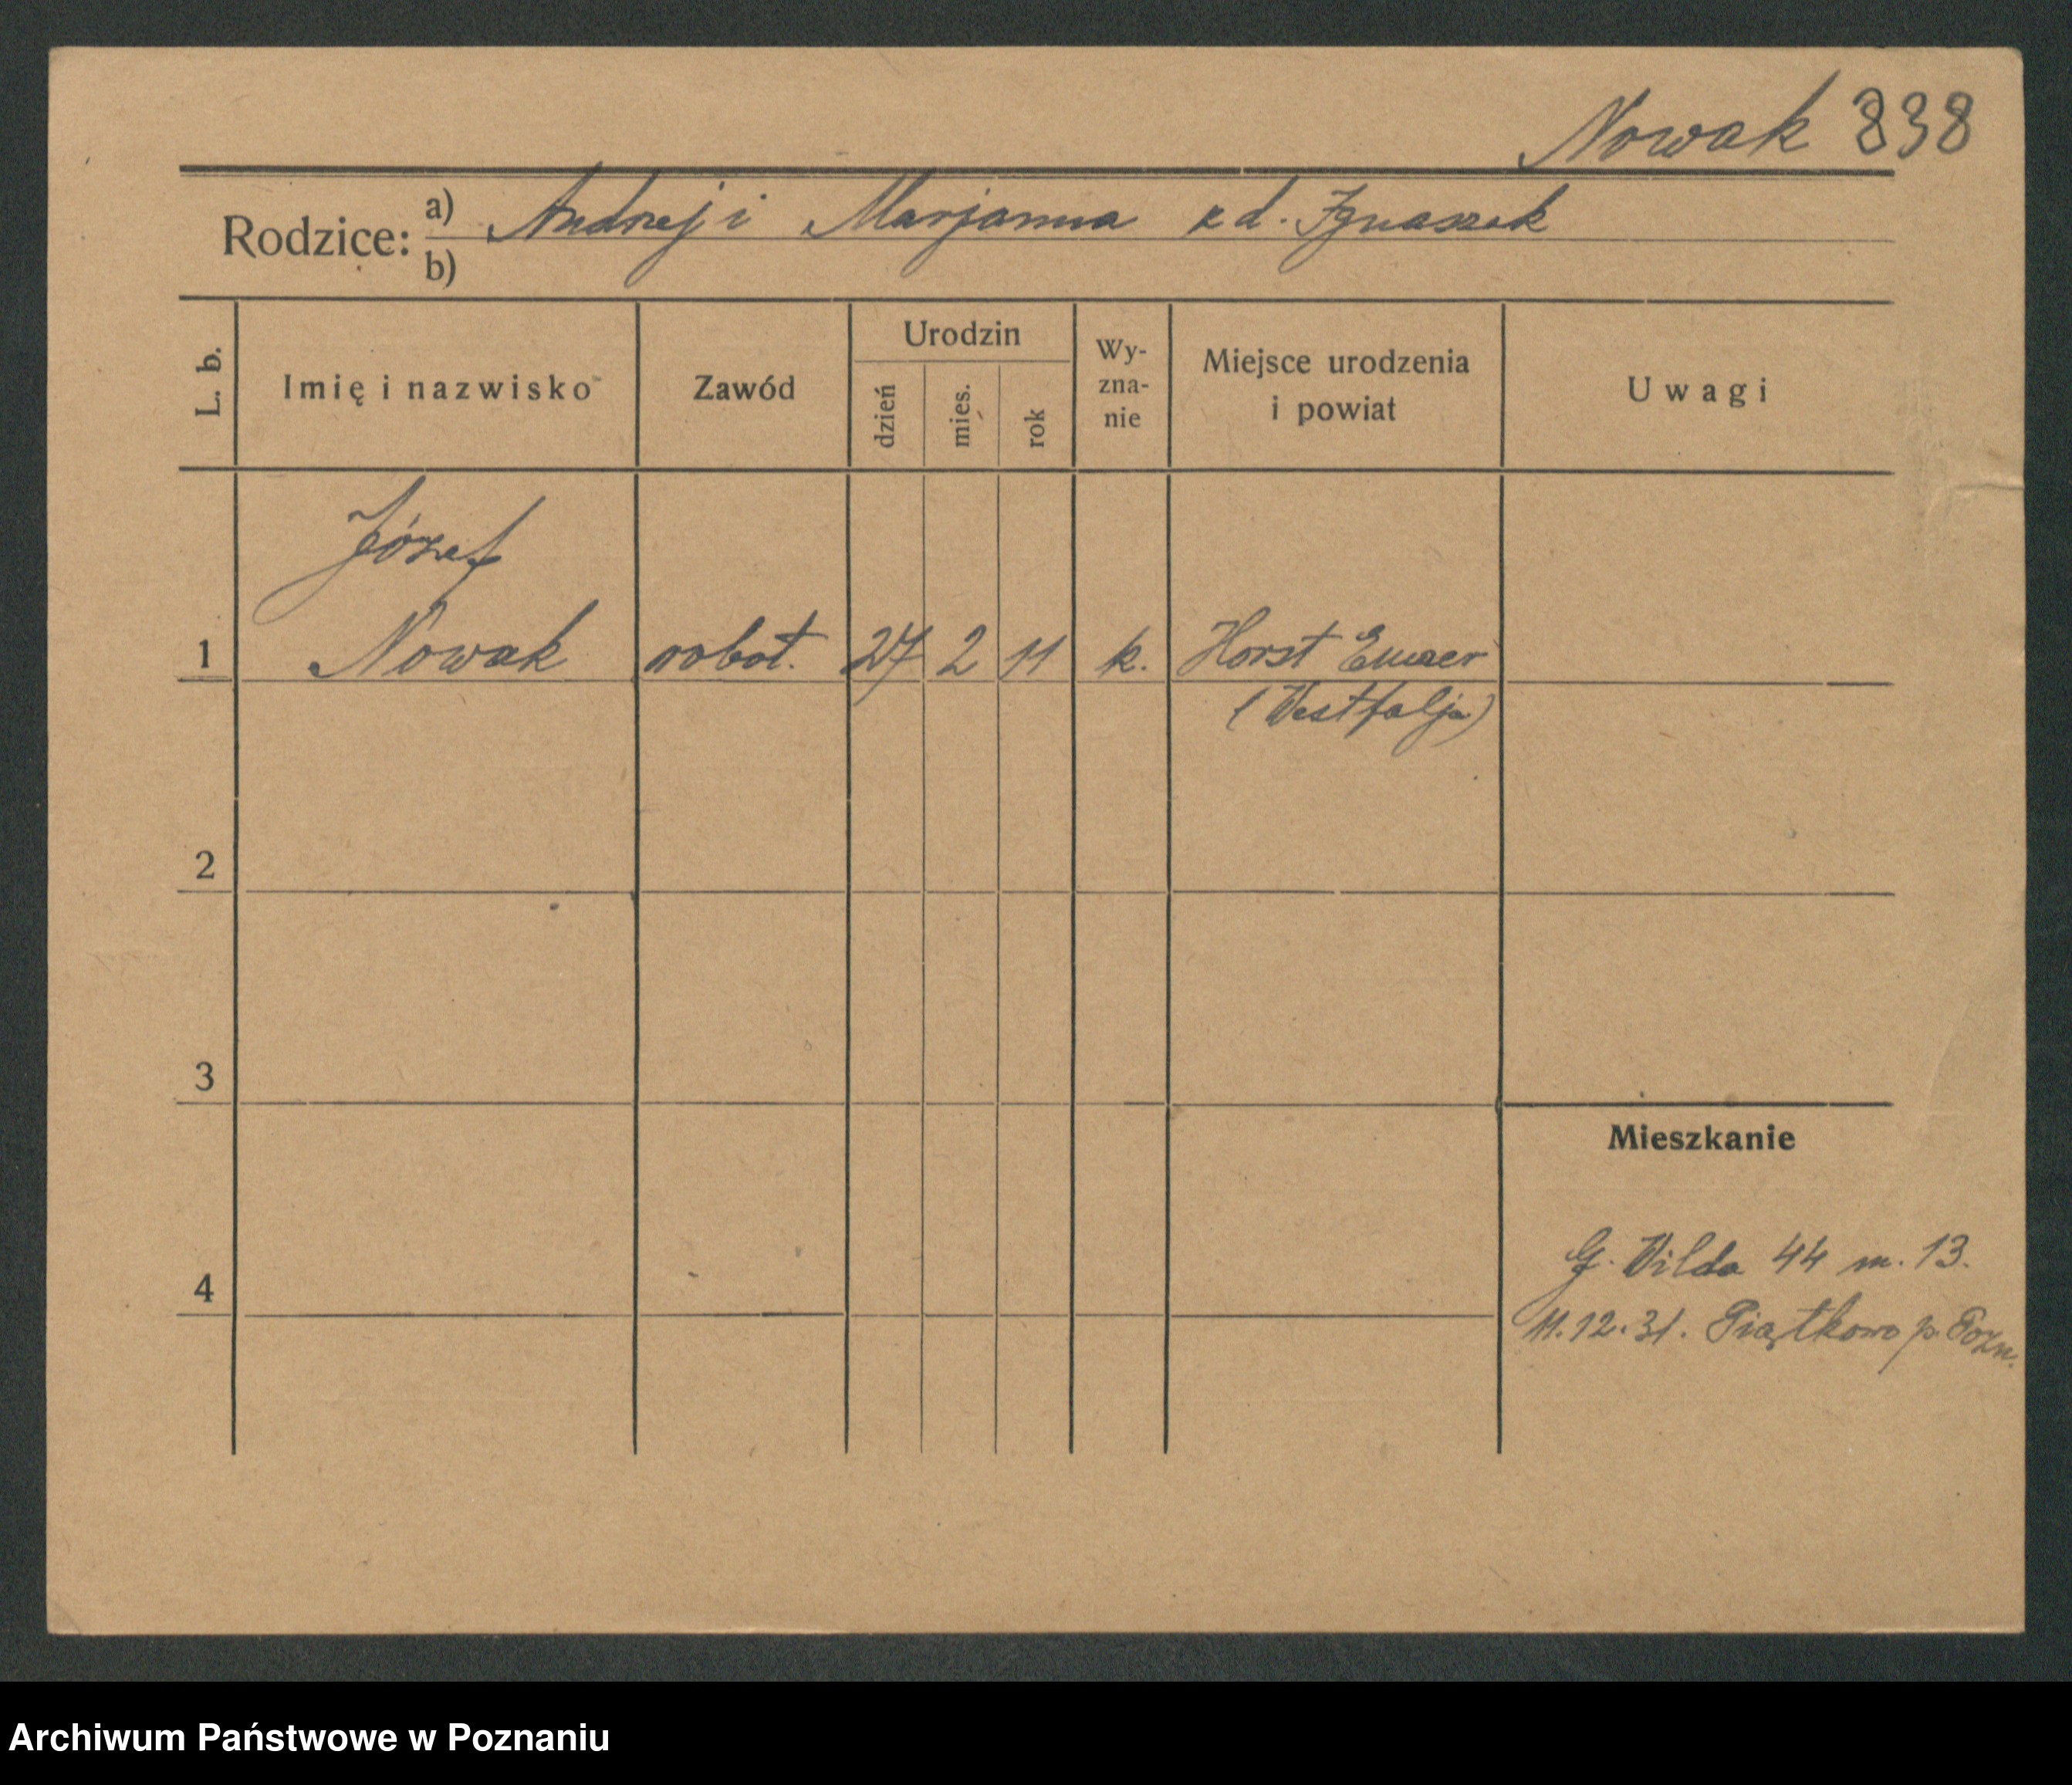 Nowak 838
Rodzice: a) Andrzej i Marjanna z d. Ignaszak
b)
L. b. Imię i nazwisko Zawód Urodzin dzień mies. rok Wy-zna-nie Miejsce urodzenia i powiat Uwagi
Józef
1 Nowak robot. 27 2 11 k. Horst Emscer
(Westfalja)
2
3
Mieszkanie
G. Wilda 44 m. 13.
4
11.12.31. Piątkowo p. Pozn.
Archiwum Państwowe w Poznaniu